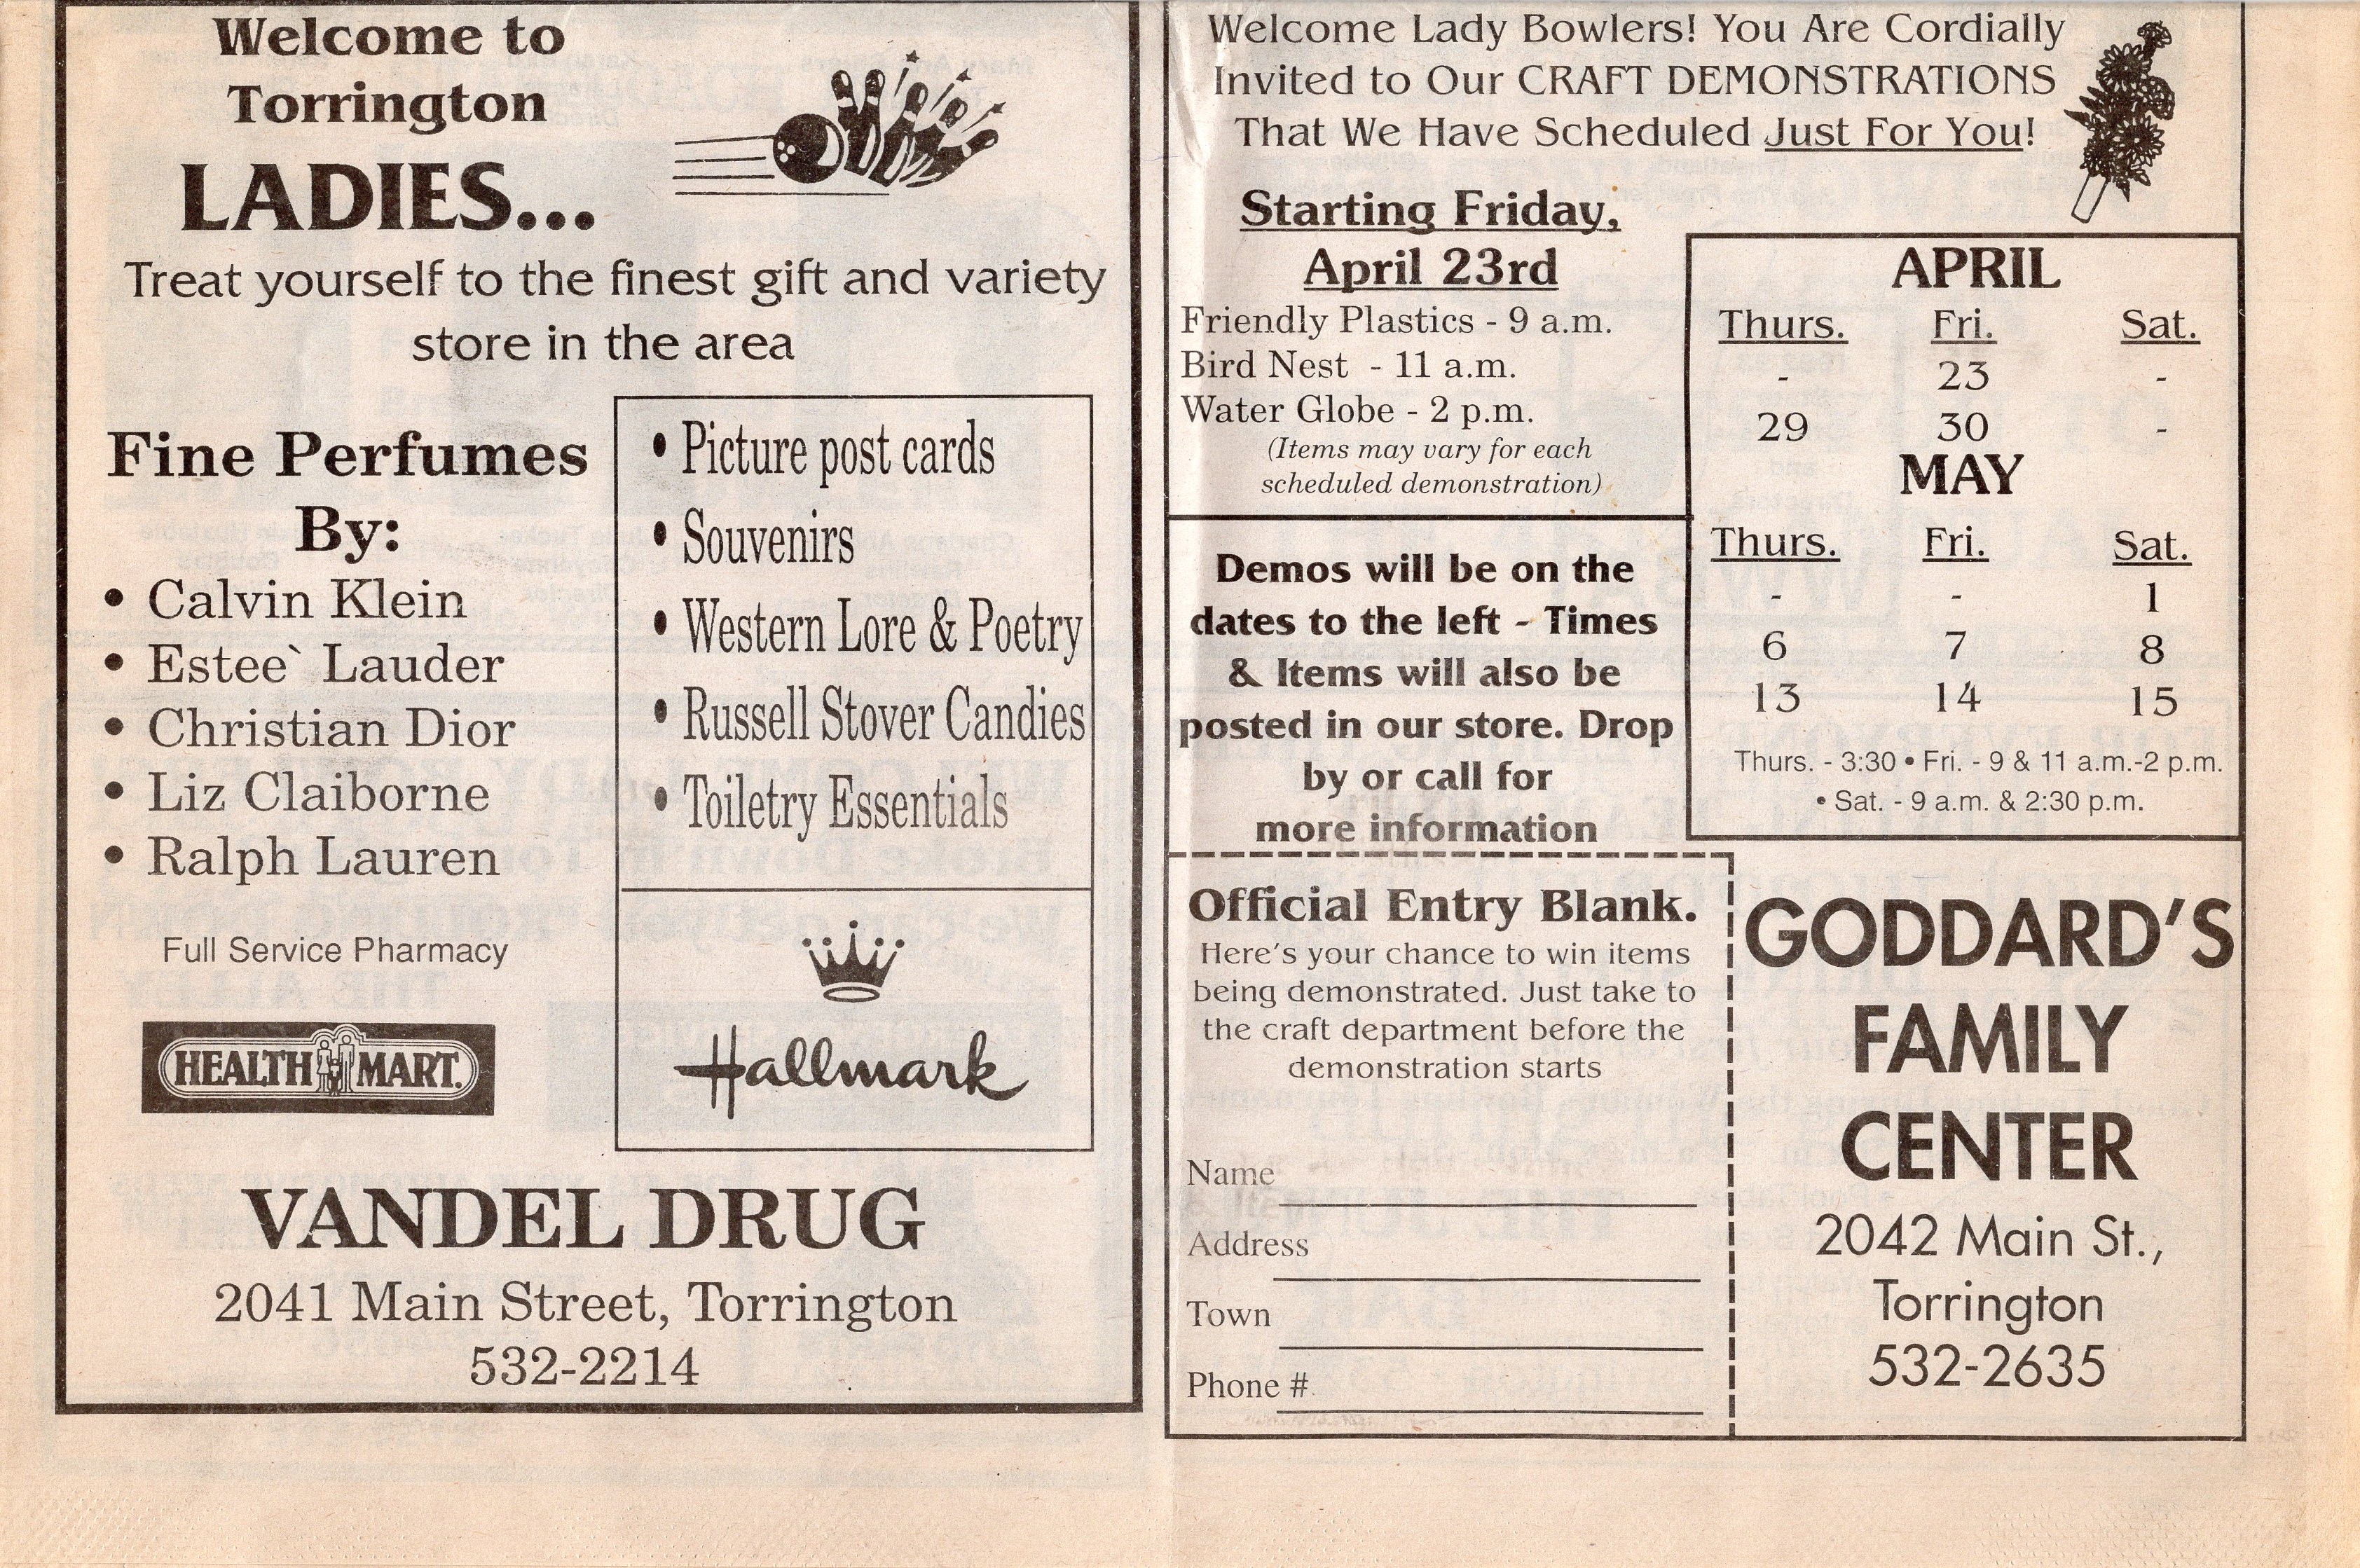 Welcome to
Torrington
LADIES...
Treat yourself to the finest gift and variety
store in the area
Fine Perfumes
By:
• Calvin Klein
• Estee` Lauder
• Christian Dior
• Liz Claiborne
• Ralph Lauren
Full Service Pharmacy
HEALTH MART.
• Picture post cards
• Souvenirs
• Western Lore & Poetry
• Russell Stover Candies
• Toiletry Essentials
Hallmark
VANDEL DRUG
2041 Main Street, Torrington
532-2214
Welcome Lady Bowlers! You Are Cordially
Invited to Our CRAFT DEMONSTRATIONS
That We Have Scheduled Just For You!
Starting Friday,
April 23rd
Friendly Plastics - 9 a.m.
Bird Nest - 11 a.m.
Water Globe - 2 p.m.
(Items may vary for each
scheduled demonstration)
APRIL
Thurs. Fri. Sat.
- 23 -
29 30 -
MAY
Thurs. Fri. Sat.
- - 1
6 7 8
13 14 15
Thurs. - 3:30 • Fri. - 9 & 11 a.m.-2 p.m.
• Sat. - 9 a.m. & 2:30 p.m.
Demos will be on the
dates to the left - Times
& Items will also be
posted in our store. Drop
by or call for
more information
Official Entry Blank.
Here's your chance to win items
being demonstrated. Just take to
the craft department before the
demonstration starts
Name
Address
Town
Phone #
GODDARD'S
FAMILY
CENTER
2042 Main St.,
Torrington
532-2635